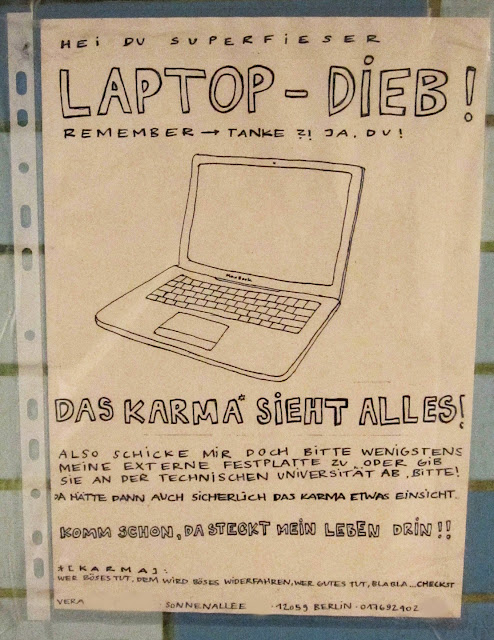 HEI DU SUPERFIESER
LAPTOP - DIEB!
REMEMBER → TANKE ?! JA, DU!
MacBook
DAS KARMA* SIEHT ALLES!
ALSO SCHICKE MIR DOCH BITTE WENIGSTENS
MEINE EXTERNE FESTPLATTE ZU, ODER GIB
SIE AN DER TECHNISCHEN UNIVERSITÄT AB, BITTE!
DA HÄTTE DANN AUCH SICHERLICH DAS KARMA ETWAS EINSICHT.
KOMM SCHON, DA STECKT MEIN LEBEN DRIN!!
*[KARMA]:
WER BÖSES TUT, DEM WIRD BÖSES WIDERFAHREN, WER GUTES TUT, BLABLA...CHECKST
VERA SONNENALLEE · 12059 BERLIN · 017692902